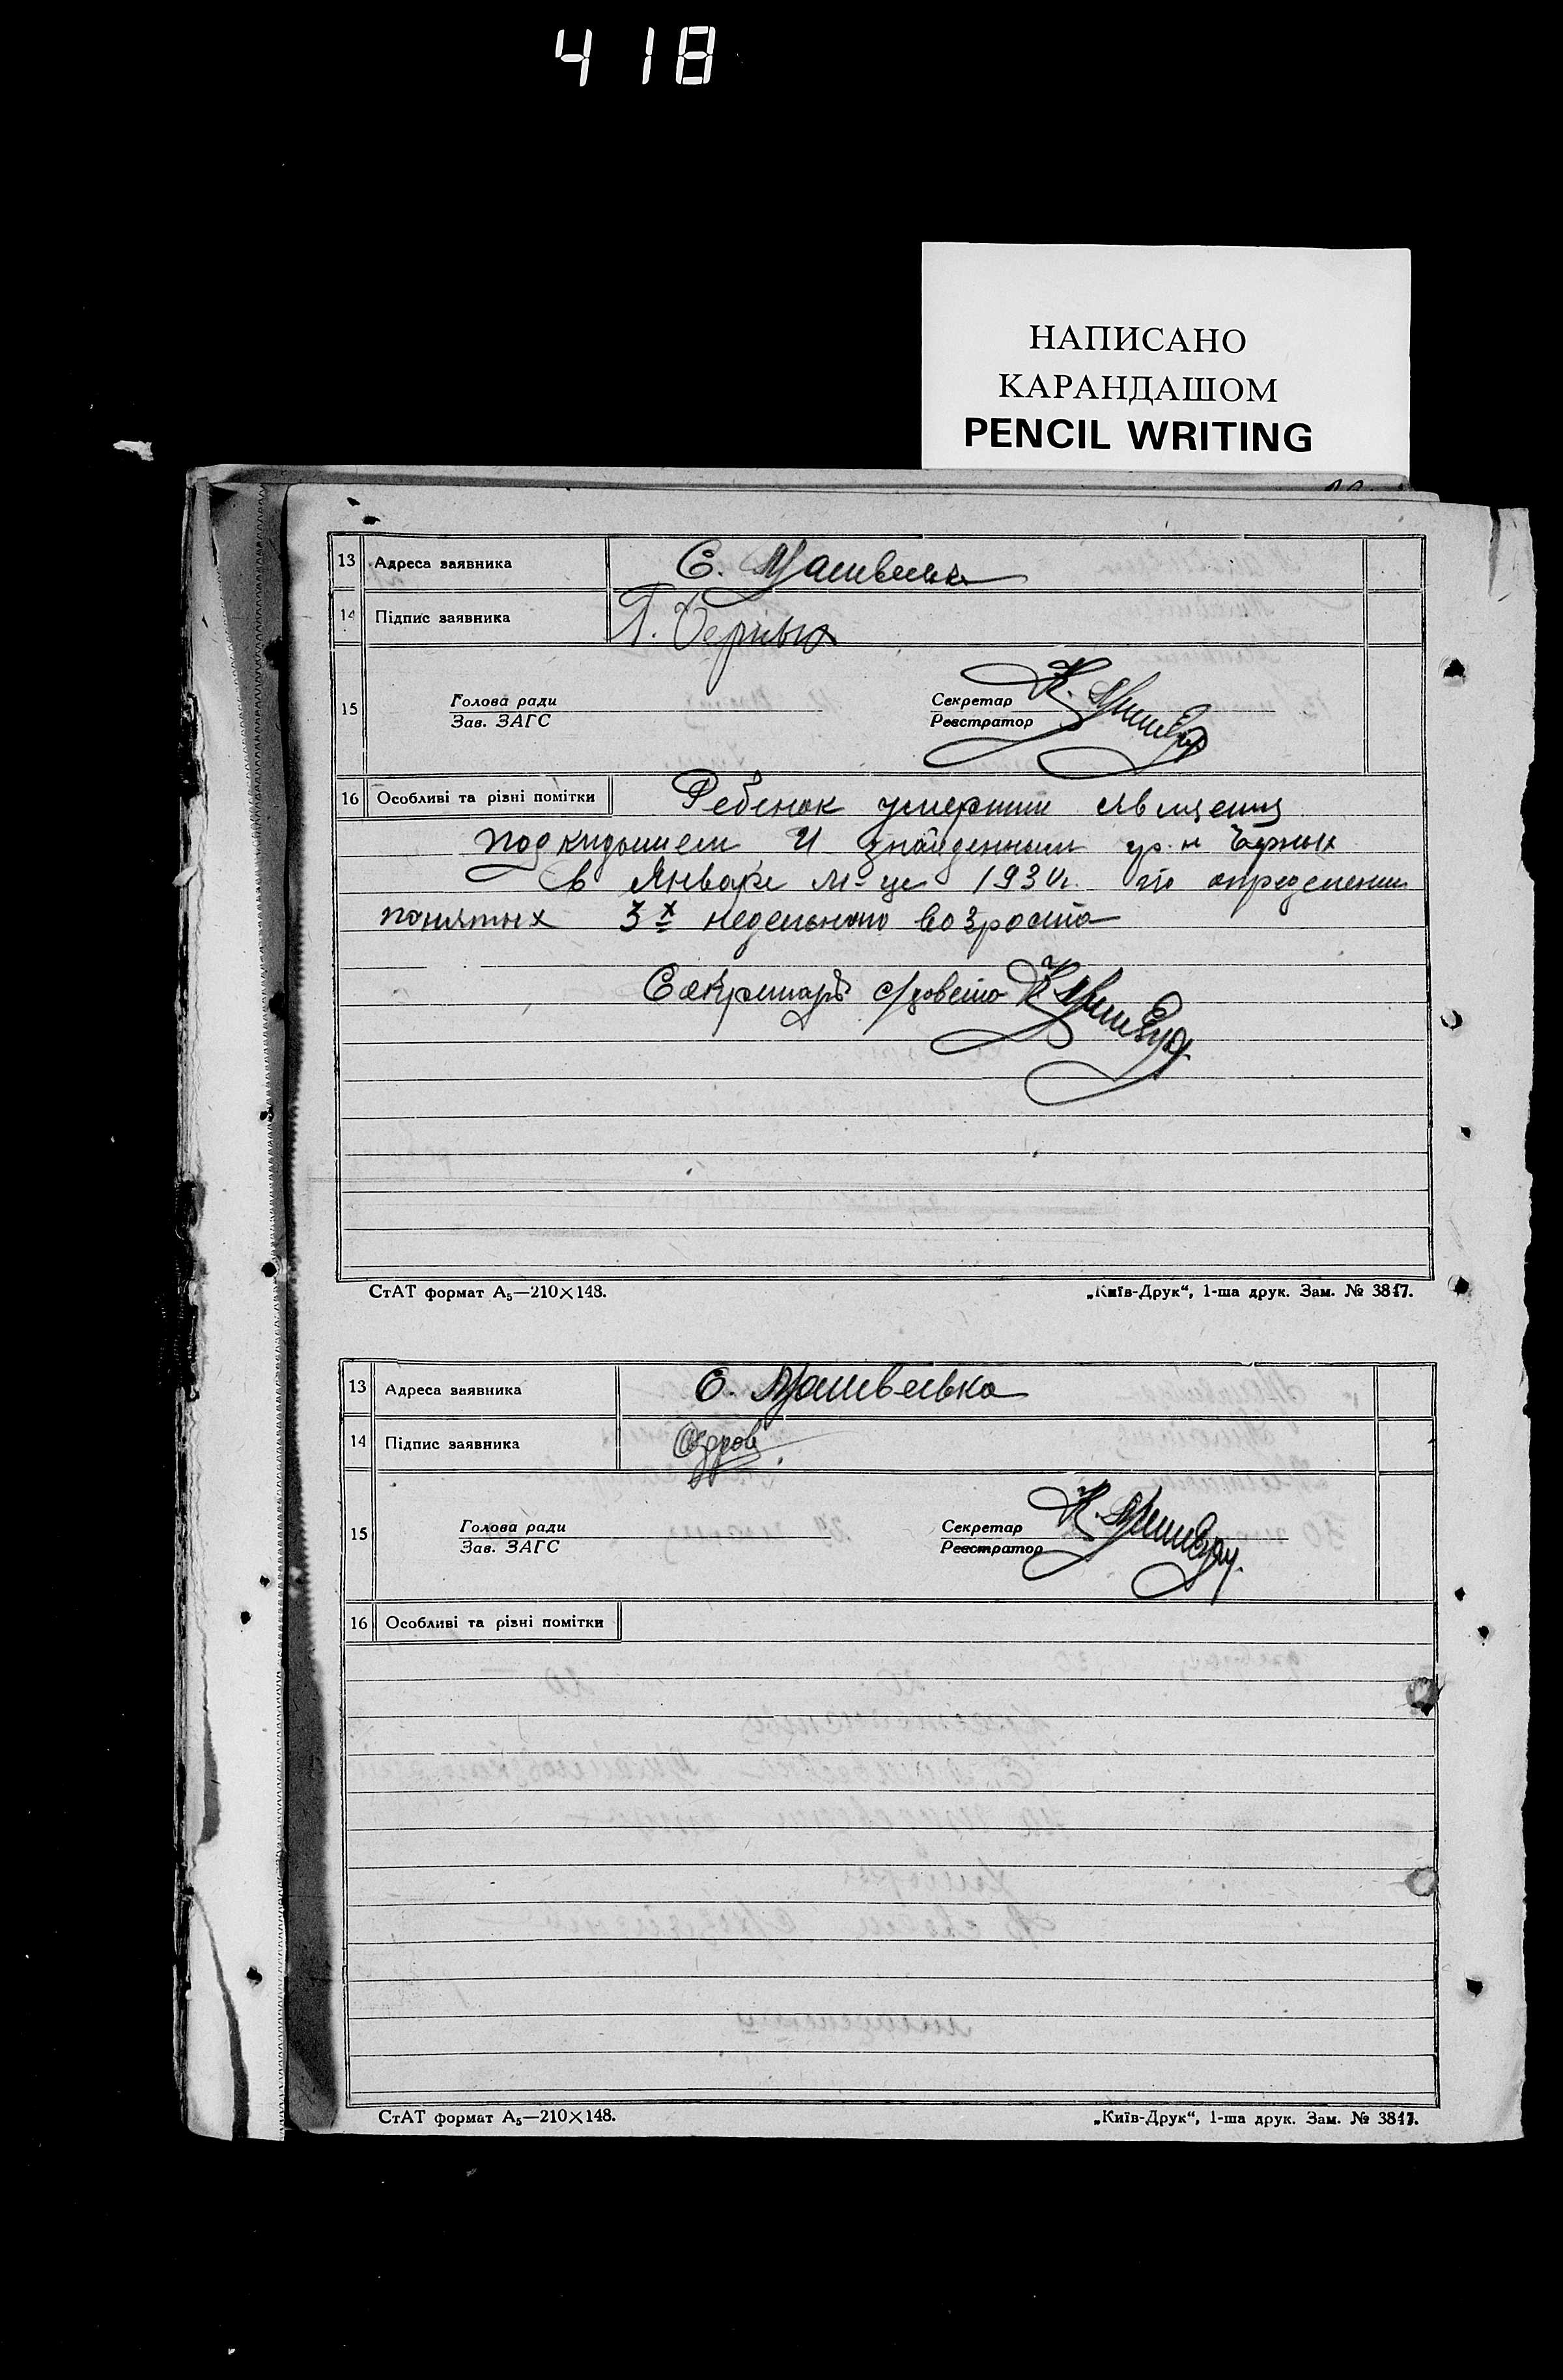 418
НАПИСАНО
КАРАНДАШОМ
PENCIL WRITING
13 Адреса заявника С.
14 Підпис заявника Т. Черных
15 Голова ради Секретар К.
Зав. ЗАГС Реєстратор
16 Особливі та різні помітки Ребенок умерший явлцения
подкидышем и знайденным гр. н Черных
в Январе м-це 193 г. по определении
понятых 3х недельного возроста
Секретарь с/совета К.
СтАТ формат А5—210×148. „Київ-Друк“, 1-ша друк. Зам. № 3847.
13 Адреса заявника С.
14 Підпис заявника
15 Голова ради Секретар К.
Зав. ЗАГС Реєстратор
16 Особливі та різні помітки
СтАТ формат А5—210×148. „Київ-Друк“, 1-ша друк. Зам. № 3847.